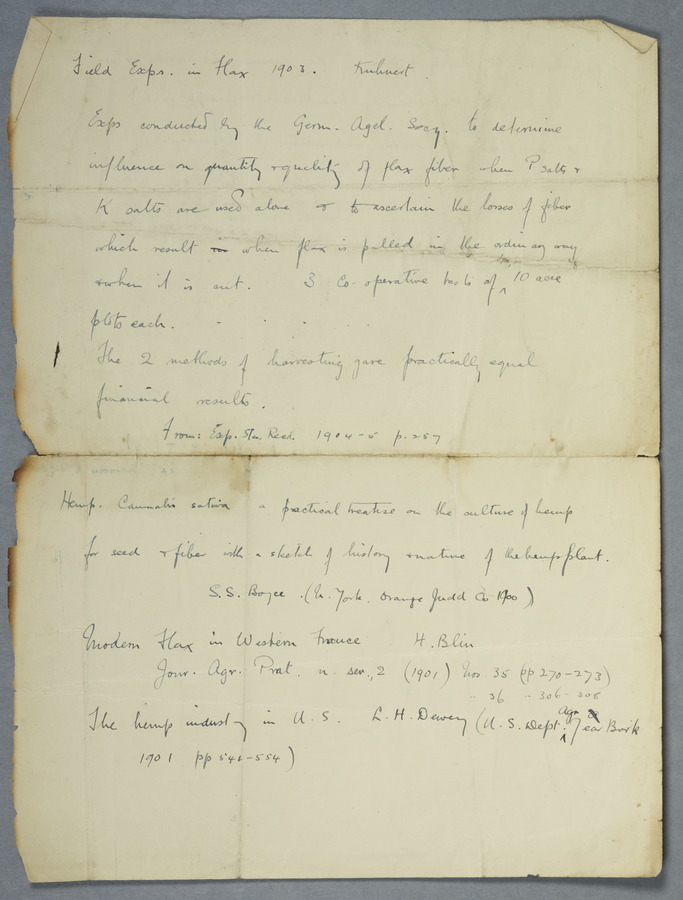 Field Exps. in Flax 1903. Kuhnert.
Exps conducted by the Germ. Agcl. Socy. to determine
influence on quantity & quality of flax fiber when P salts &
K salts are used alone & to ascertain the losses of fiber
which result in when flax is pulled in the ordinary way
& when it is cut. 3 Co-operative tests of 10 acre
plots each. - . . . .
The 2 methods of harvesting gave practically equal
financial results.
From: Exp. Stn. Recd. 1904-5 p. 257
Hemp. Cannabis sativa a practical treatise on the culture of hemp
for seed & fiber with a sketch of history & nature of the hemp plant.
S.S. Boyce. (N. York. Orange Judd Co 1900)
Modern Flax in Western France H. Blin
Jour. Agr. Prat. n. ser., 2 (1901) Nos. 35 (pp 270-273)
" 36 " 306-308
The hemp industry in U.S. L.H. Dewey (U.S. Dept. Agr. Year Book
1901 pp 541-554)